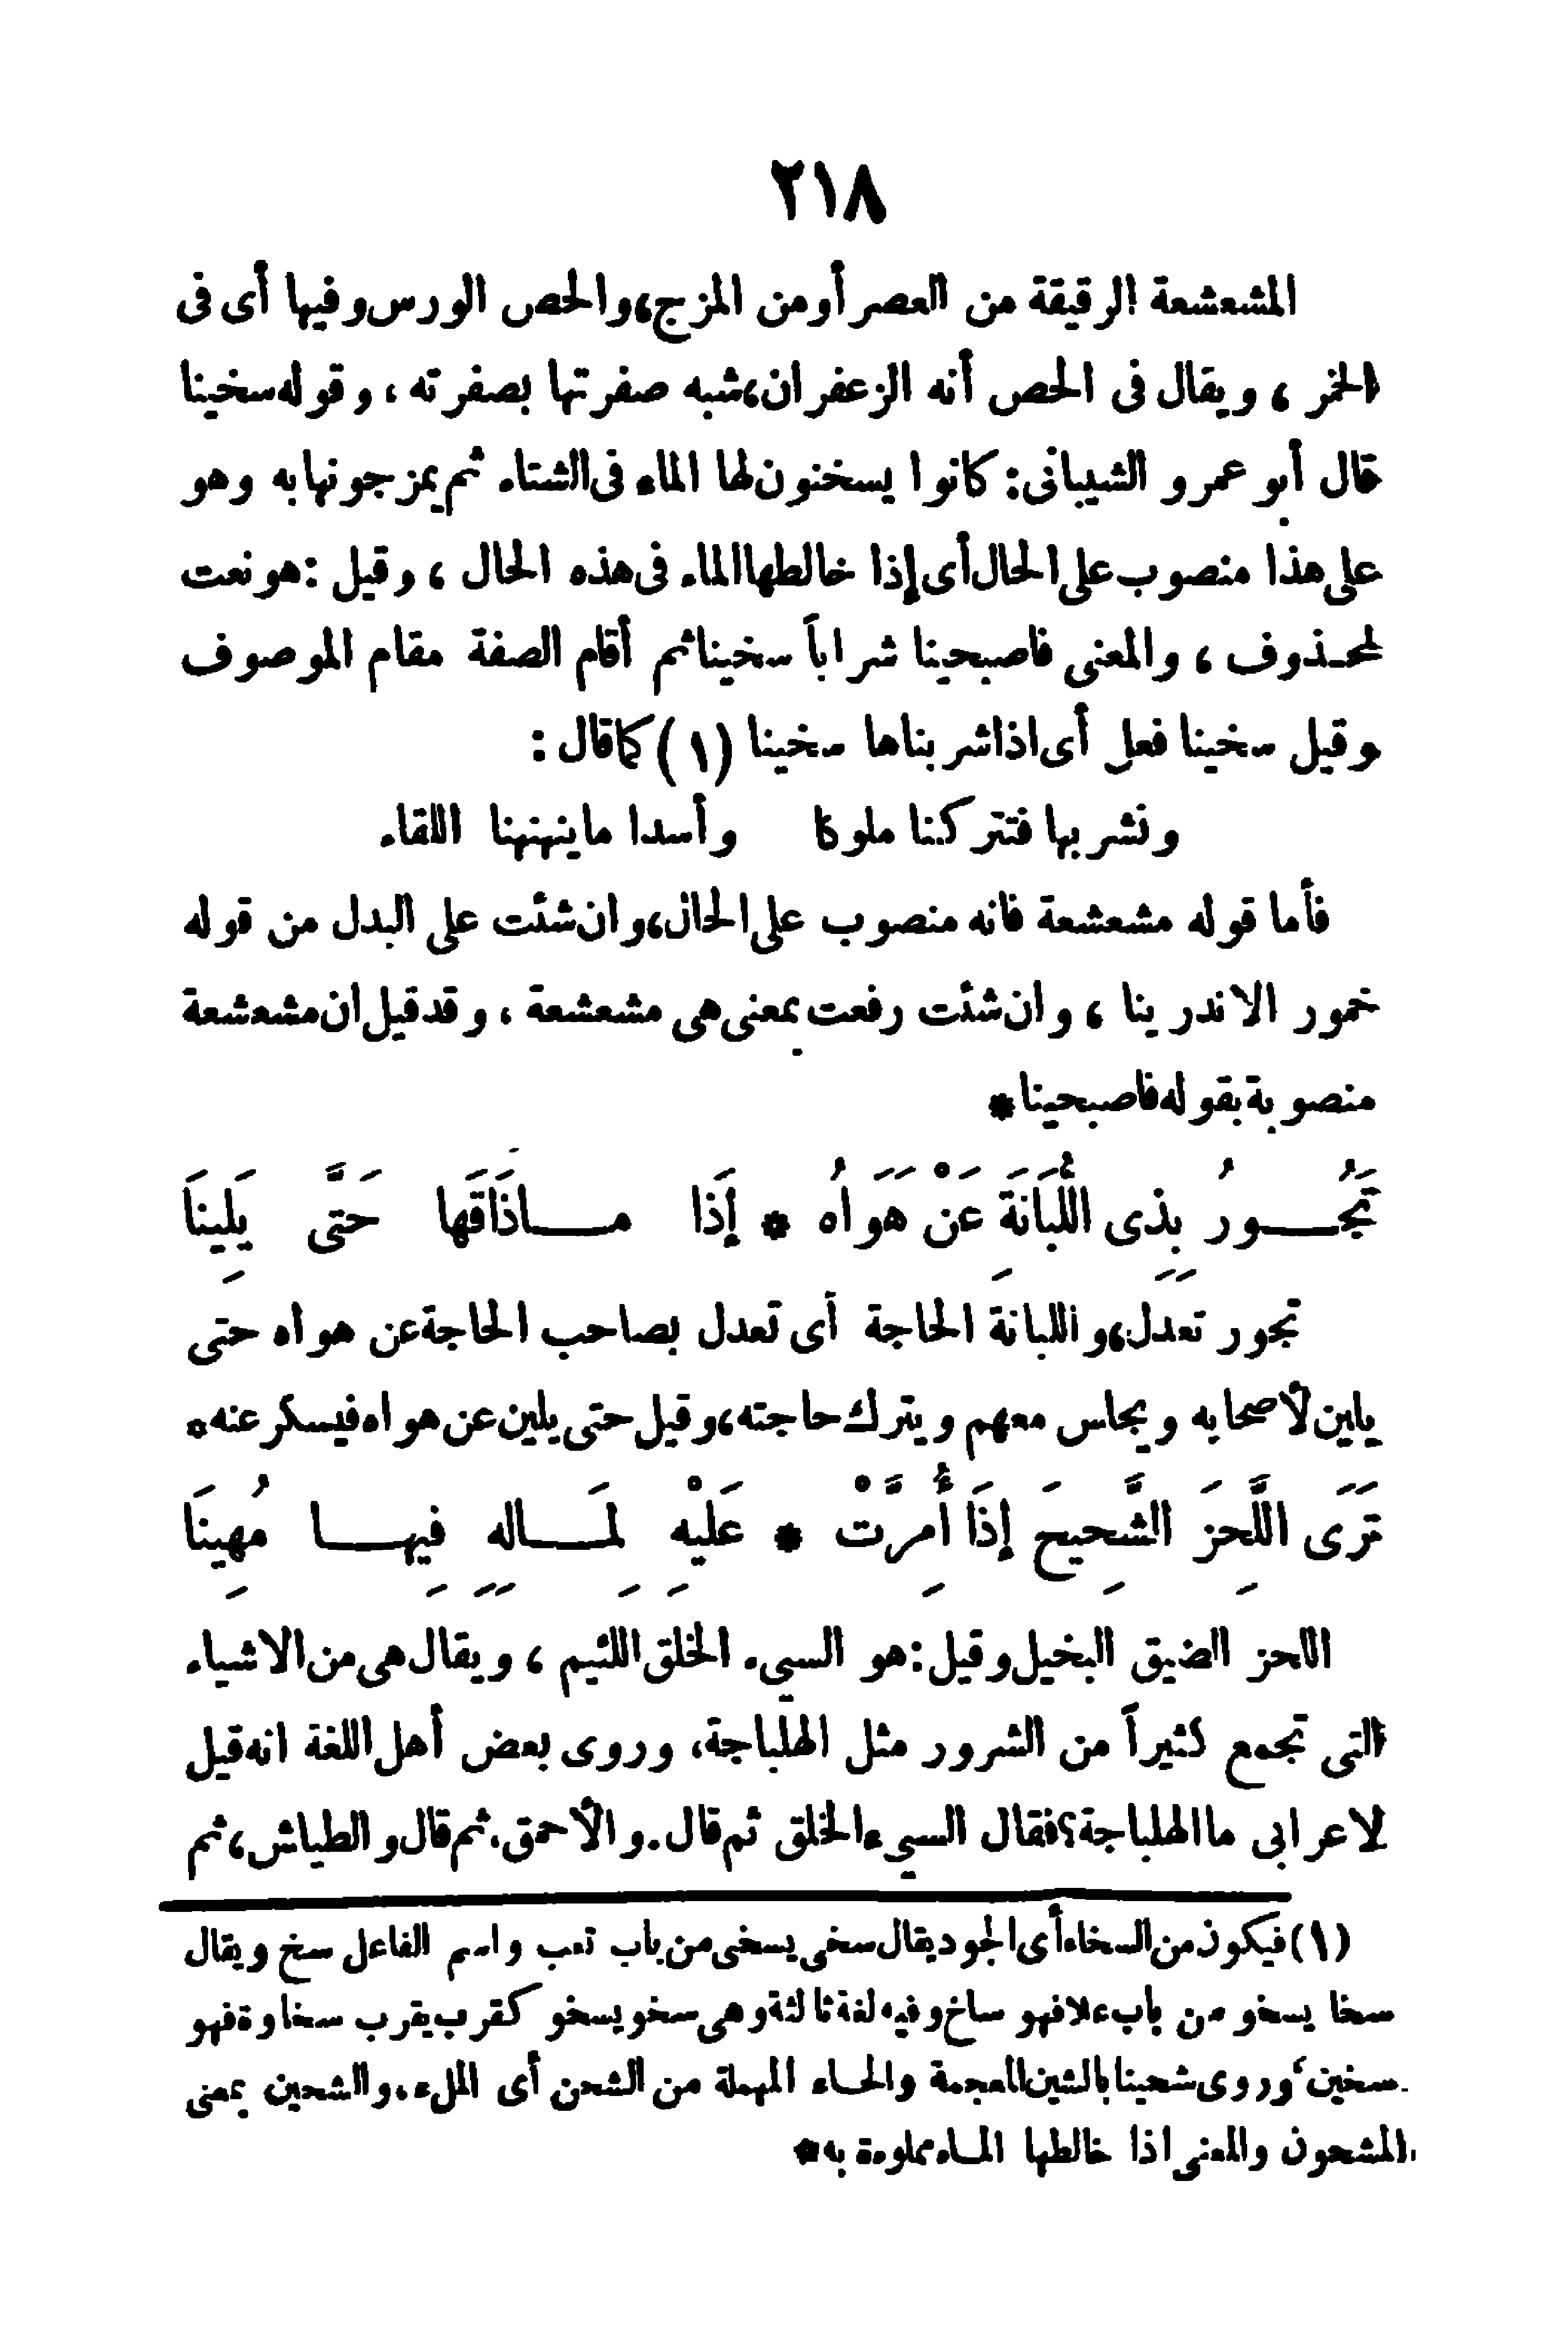 ٢١٨
المشعشعة الرقيقة من العصر أو من المزج، والحص الورس وفيها أى فى
الخمر ، ويقال فى الحص أنه الزعفران، شبه صفرتها بصفرته ، وقوله سخينا
قال أبو عمرو الشيبانى: كانوا يسخنون لها الماء فى الشتاء ثم يمزجونها به وهو
على هذا منصوب على الحال أى إذا خالطها الماء فى هذه الحال ، وقيل : هو نعت
لمحذوف ، والمعنى فاصبحينا شراباً سخينا ثم أقام الصفة مقام الموصوف
وقيل سخينا فعل أى اذا شربناها سخينا (١) كما قال :
ونشربها فتتركنا ملوكا وأسدا ما ينهنهنا اللقاء
فأما قوله مشعشعة فانه منصوب على الحال، وان شئت على البدل من قوله
خمور الاندرينا ، وان شئت رفعت بمعنى هى مشعشعة ، وقد قيل ان مشعشعة
منصوبة بقوله فاصبحينا *
تَجُورُ بِذِى اللُّبَانَةِ عَنْ هَوَاُه * إِذَا مَاذَاقَهَا حَتَّى يَلِينَا
تجور تعدل، واللبانة الحاجة أى تعدل بصاحب الحاجة عن هواه حتى
يلين لأصحابه ويجلس معهم ويترك حاجته، وقيل حتى يلين عن هواه فيسكر عنه *
تَرَى اللَّحِزَ الشَّحِيحَ إِذَا أُمِرَّتْ * عَلَيْهِ لِمَالِهِ فِيهَا مُهِينَا
اللحز الضيق البخيل وقيل : هو السيء الخلق اللئيم ، ويقال هى من الاشياء
التى تجمع كثيراً من الشرور مثل الهلباجة، وروى بعض أهل اللغة انه قيل
لاعرابى ما الهلباجة؟ فقال السيء الخلق ثم قال. والأحمق. ثم قال والطياش، ثم
(١) فيكون من السخاء أى الجود يقال سخى يسخى من باب تعب واسم الفاعل سخ ويقال
سخا يسخو من باب علا فهو ساخ وفيه لغة ثالثة وهى سخو يسخو كقرب يقرب سخاوة فهو
سخين، وروى شحينا بالشين المعجمة والحاء المهملة من الشحن أى الملء، والشحين بمعنى
المشحون والمعنى اذا خالطها الماء مملوءة به *